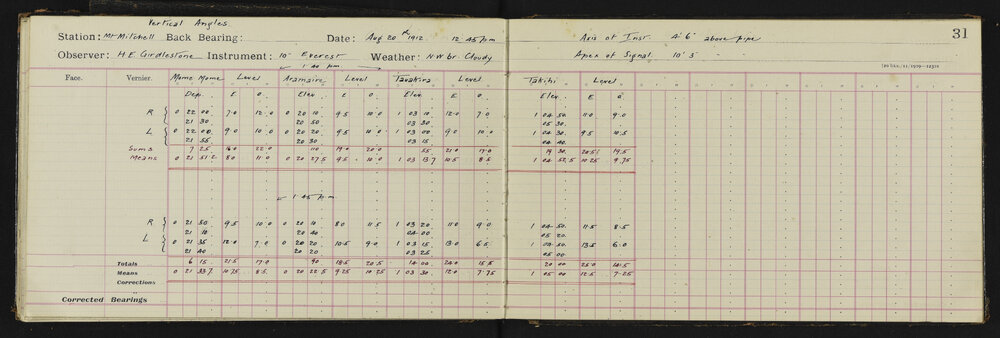 Vertical Angles
Station: Mt Mitchell Back Bearing: Date: Aug 20th 1912 12 45 pm Axis of Inst. 4' 6" above pipe 31
Observer: H.E. Girdlestone Instrument: 10" Everest Weather: N.W br. Cloudy Apex of Signal 10' 3" " "
1 40 pm
Face. Vernier. Mome Mome Level Aramaire Level Tawakira Level Takihi Level
Dep. E O Elev. E O Elev. E O Elev. E O
R 0 22 00 7.0 12.0 0 20 10 9.5 10.0 1 03 10 12.0 7.0 1 04 50 11.0 9.0
21 30 20 50 03 30 05 30
L 0 22 00 9.0 10.0 0 20 20 9.5 10.0 1 03 00 9.0 10.0 1 04 30 9.5 10.5
21 55 20 30 03 15 04 40
Sums 7 25 16.0 22.0 110 19.0 20.0 55 21.0 17.0 19 30 20.5 19.5
Means 0 21 51.2 8.0 11.0 0 20 27.5 9.5 10.0 1 03 13.7 10.5 8.5 1 04 52.5 10.25 9.75
1 45 pm
R 0 21 50 9.5 10.0 0 20 10 8.0 11.5 1 03 20 11.0 9.0 1 04 50 11.5 8.5
21 10 20 40 04 00 05 20
L 0 21 35 12.0 7.0 0 20 20 10.5 9.0 1 03 15 13.0 6.5 1 04 50 13.5 6.0
21 40 20 20 03 25 05 00
Totals 6 15 21.5 17.0 90 18.5 20.5 14 00 24.0 15.5 20 00 25.0 14.5
Means 0 21 33.7 10.75 8.5 0 20 22.5 9.25 10.25 1 03 30 12.0 7.75 1 05 00 12.5 7.25
Corrections
Corrected Bearings